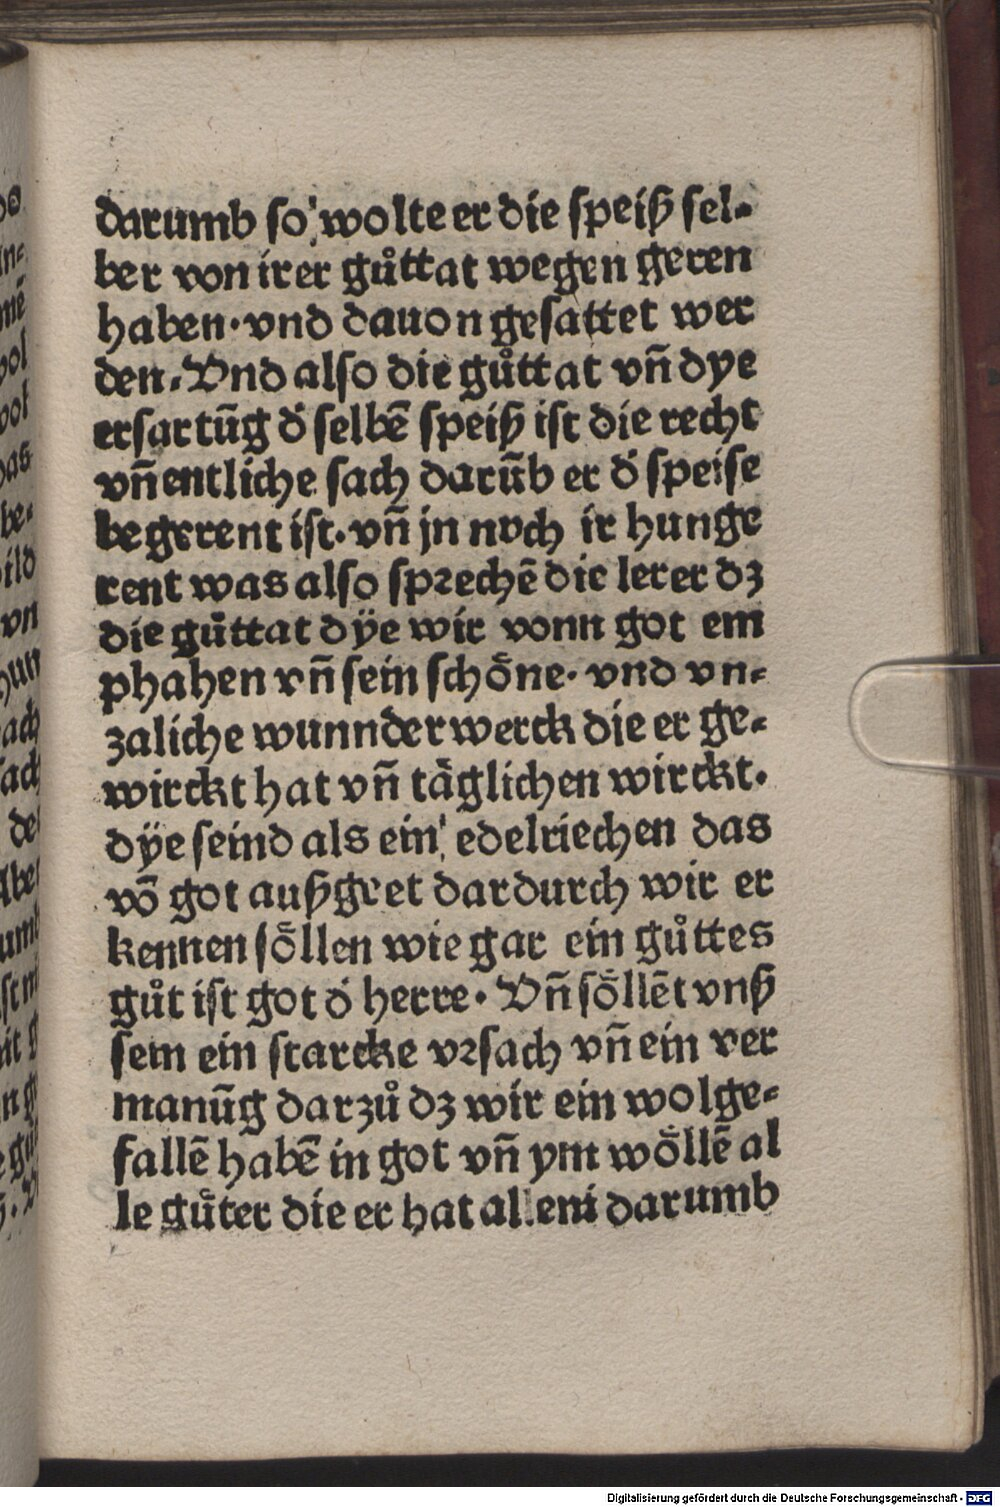 darumb so wolte er die speiß sel-
ber von irer gůttat wegen geren
haben· vnd dauon gesattet wer
den. Vnd also die gůttat vn̄ dye
ersartūg d̓ selbē speiß ist die recht
vn̄ entliche sach darūb er d̓ speise
begerent ist. vn̄ jn noch ir hunge
rent was also sprechē die lerer dz
die gůttat dÿe wir vonn got em
phahen vn̄ sein schöne· vnd vn-
zaliche wunnderwerck die er ge-
wirckt hat vn̄ täglichen wirckt.
dÿe seind als ein edelriechen das
vō got außgeet dardurch wir er
kennen söllen wie gar ein gůttes
gůt ist got d̓ herre· Vn̄ söllēt vnß
sein ein starcke vrsach vn̄ ein ver
manūg darzů dz wir ein wolge-
fallē habē in got vn̄ ym wöllē al
le gůter die er hat allein darumb
Digitalisierung gefördert durch die Deutsche Forschungsgemeinschaft - DFG